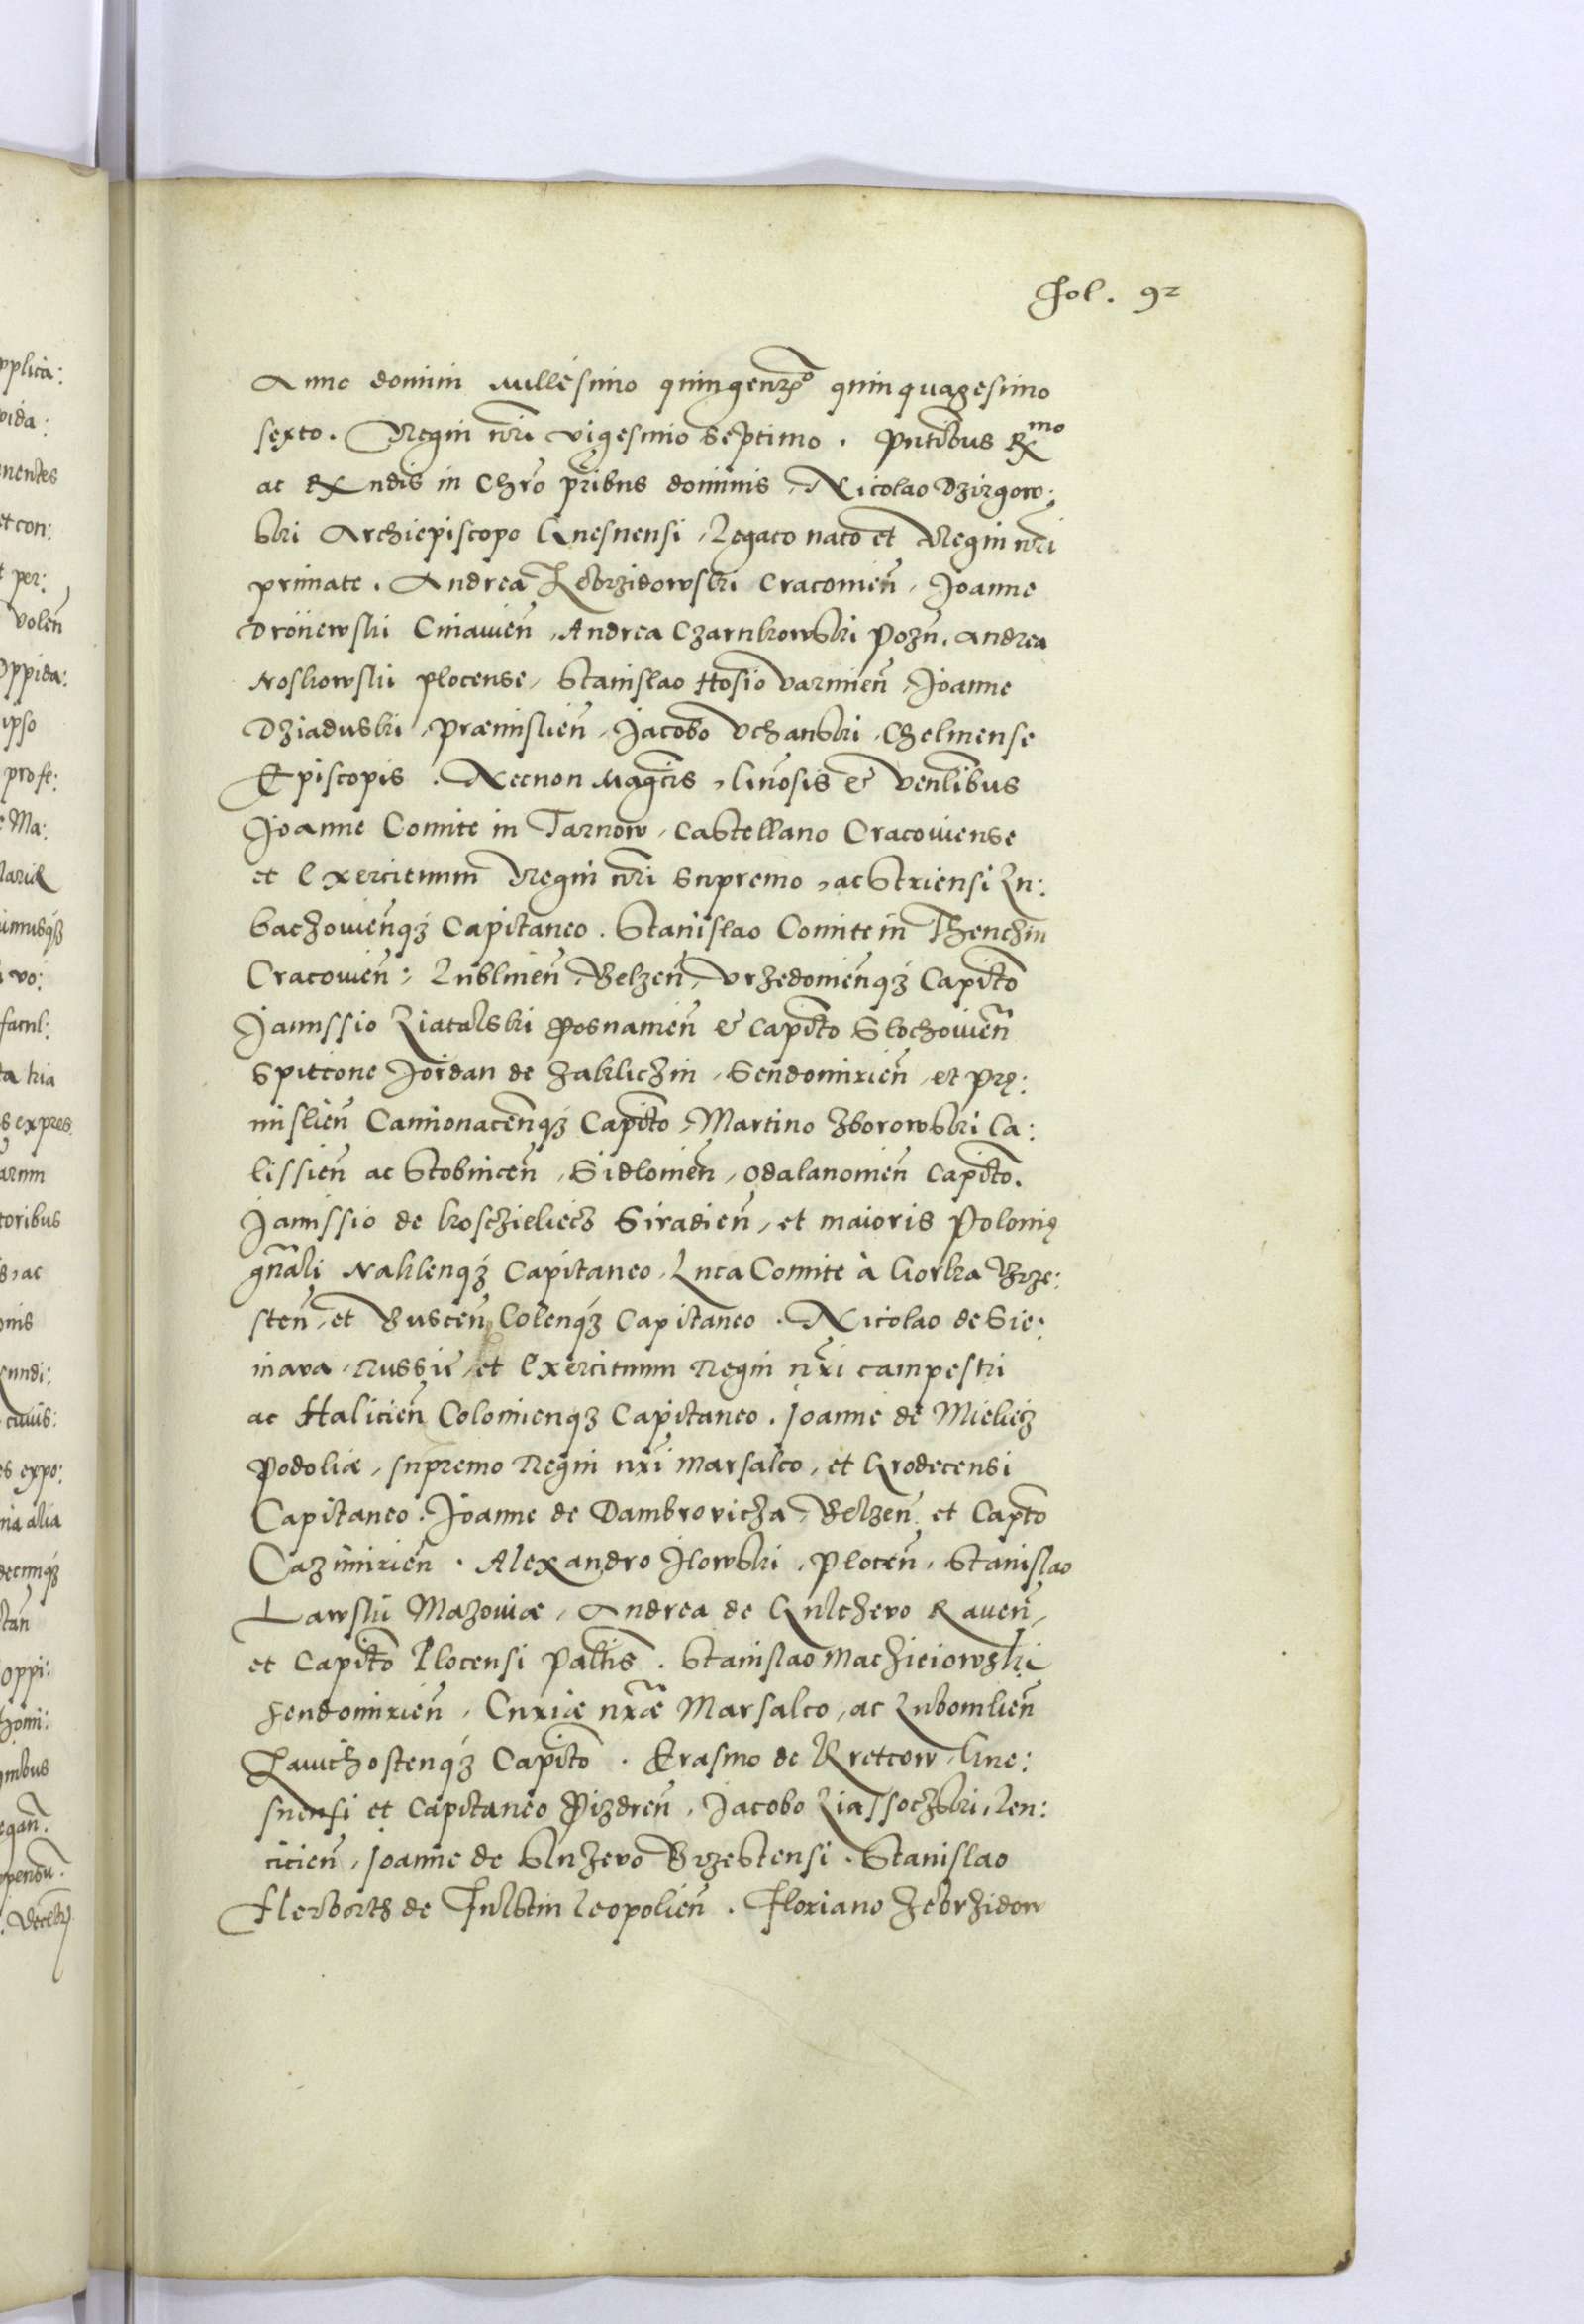 Fol. 92
Anno domini Millesimo quingentmo quinquagesimo
sexto. Regni nri vigesimo septimo. pntibus Rmo
ac Rndis in Chro pribus dominis, Nicolao Dzirgow:
ski Archiepiscopo Gnesnensi, Legato nato et Regni nri
primate. Andrea Zebrzidowski Cracovien, Joanne
Droiiewski Cuiavien, Andrea Czarnkowski Pozn. Andrea
Noskowski plocense, Stanislao Hosio Varmien, Joanne
Dziaduski, Præmislien, Jacobo Uchanski, Chelmense
Episcopis. Necnon Magcis, Gnosis & Venlibus
Joanne Comite in Tarnow, Castellano Cracoviense
et Exercituum Regni nri supremo, ac Striensi Lu:
baczovienqz Capitaneo. Stanislao Comite in Thenczin
Cracovien: Lublinen, Belzen, Urzedovienqz Capito
Janussio Liatalski Posnanien & Capito Slochovien
Spitcone Jordan de Zakliczin, Sendomirien, et prę:
mislien Camionacenqz Capito, Martino Zborowski Ca:
lissien ac Stobnicen, Sidlovien, Odalanovien Capito.
Janissio de koszieliecz Siradien, et maioris Polonię
gnali Naklenqz Capitaneo, Luca Comite à Gorka Brze:
sten, et Buscen Colenqz Capitaneo. Nicolao de Sie:
niava, Russię, et Exercituum Regni nri campestri
ac Halicien Colomienqz Capitaneo. Joanne de Mieliecz
Podoliæ, supremo Regni nri Marsalco, et Grodecensi
Capitaneo. Joanne de Dambrovicza, Belzen et Capto
Cazimirien. Alexandro Ilowski, Plocen, Stanislao
Lawski Mazoviæ, Andrea de Gulchevo Raven,
et Capito Plocensi Paltis. Stanislao Maczieiowski
sendomirien, Curiæ nræ Marsalco, ac Lubomlien
Zavichostenqz Capito. Erasmo de Kretcow, Gne:
snensi et Capitaneo Pizdren, Jacobo Liassoczski, Len:
cicien, Joanne de Sluzevo Brzestensi. Stanislao
Herborth de Fulstin Leopolien. Floriano Zebrzidow